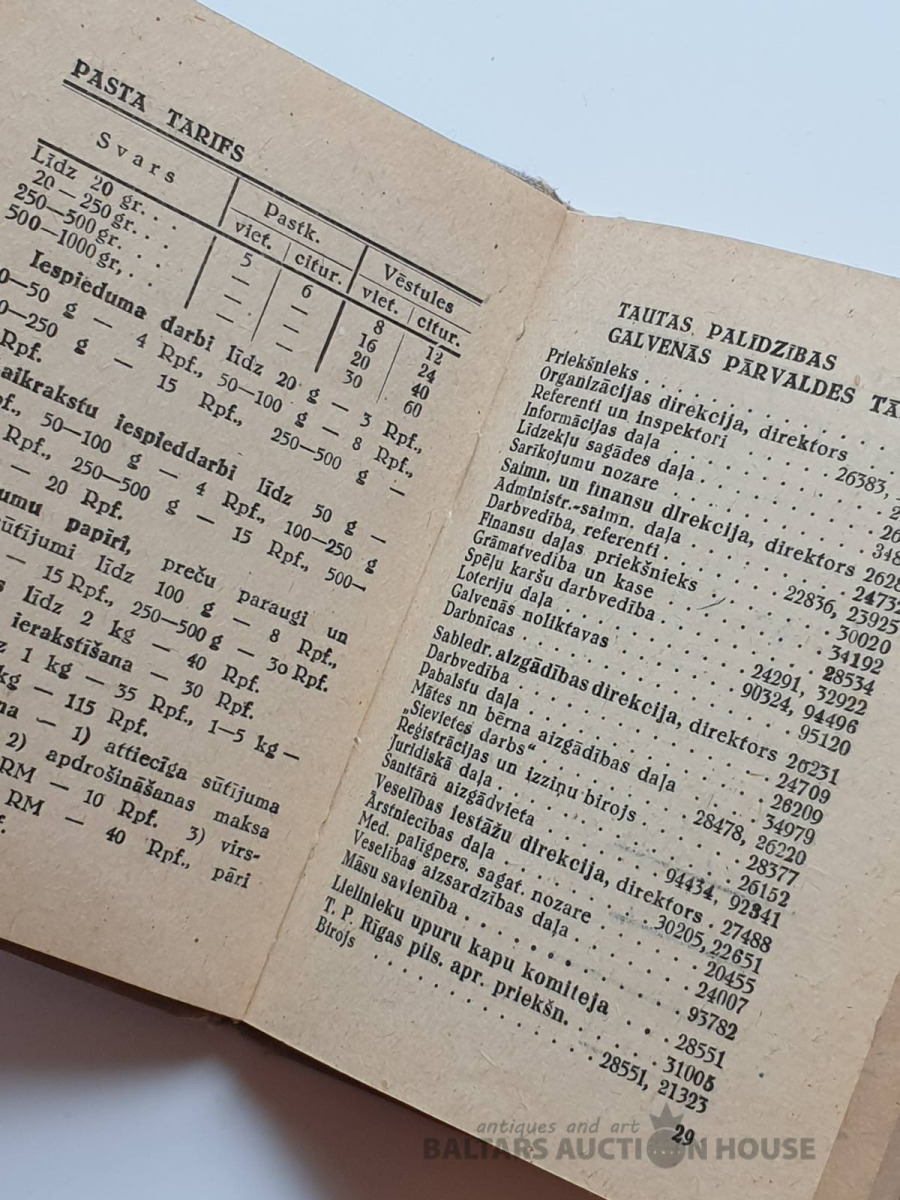 PASTA TARIFS
Svars Pastk. Vēstules
viet. citur. viet. citur.
Līdz 20 gr. . . 5 6 8 12
20—250 gr. . . — — 16 24
250—500 gr. . . — — 20 40
500—1000 gr, . . — — 30 60
Iespieduma darbi līdz 20 g — 3 Rpf.,
0—50 g — 4 Rpf., 50—100 g — 8 Rpf.,
0—250 g — 15 Rpf., 250—500 g —
Rpf.
aikrakstu iespieddarbi līdz 50 g —
pf., 50—100 g — 4 Rpf., 100—250 g
Rpf., 250—500 g — 15 Rpf., 500—
— 20 Rpf.
umu papīri, preču paraugi un
sūtījumi līdz 100 g — 8 Rpf.,
— 15 Rpf., 250—500 g — 30 Rpf.
s līdz 2 kg — 40 Rpf.
ierakstīšana — 30 Rpf.
z 1 kg — 35 Rpf., 1—5 kg —
kg — 115 Rpf.
na — 1) attiecīga sūtījuma
2) apdrošināšanas maksa
RM — 10 Rpf. 3) virs-
RM — 40 Rpf., pāri
f.
TAUTAS PALĪDZĪBAS
GALVENĀS PĀRVALDES TĀ
Priekšnieks . . . . . .
Organizācijas direkcija, direktors
Referenti un inspektori . . . 26383,
Informācijas daļa . . . . . 2
Līdzekļu sagādes daļa . . . . 26
Sarīkojumu nozare . . . . . 348
Saimn. un finansu direkcija, direktors 2628
Administr.-saimn. daļa . . . . 24732
Darbvedība, referenti . . . 22836, 23925
Finansu daļas priekšnieks . . . 30020
Grāmatvedība un kase . . . . 34192
Spēļu karšu darbvedība . . . . 28534
Loteriju daļa . . . . 24291, 32922
Galvenās noliktavas . . . 90324, 94496
Darbnīcas . . . . . . 95120
Sabiedr. aizgādības direkcija, direktors 26231
Darbvedība . . . . . . 24709
Pabalstu daļa . . . . . 26209
Mātes nn bērna aizgādības daļa . . 34979
„Sievietes darbs“ . . . 28478, 26220
Reģistrācijas un izziņu birojs . . 28377
Juridiskā daļa . . . . . 26152
Sanitārā aizgādvieta . . . 94434, 92341
Veselības iestāžu direkcija, direktors . 27488
Ārstniecības daļa . . . 30205, 22651
Med. palīgpers. sagat. nozare . . 20455
Veselības aizsardzības daļa . . . 24007
Māsu savienība . . . . . 93782
Lielinieku upuru kapu komiteja . . 28551
T. P. Rīgas pils. apr. priekšn. . . 31005
Birojs . . . . . 28551, 21323
29
antiques and art
BALTARS AUCTION HOUSE